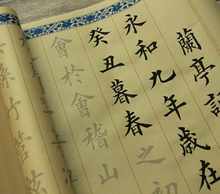 蘭亭
永和九年歲在
癸丑暮春之初
會於會稽山
竹